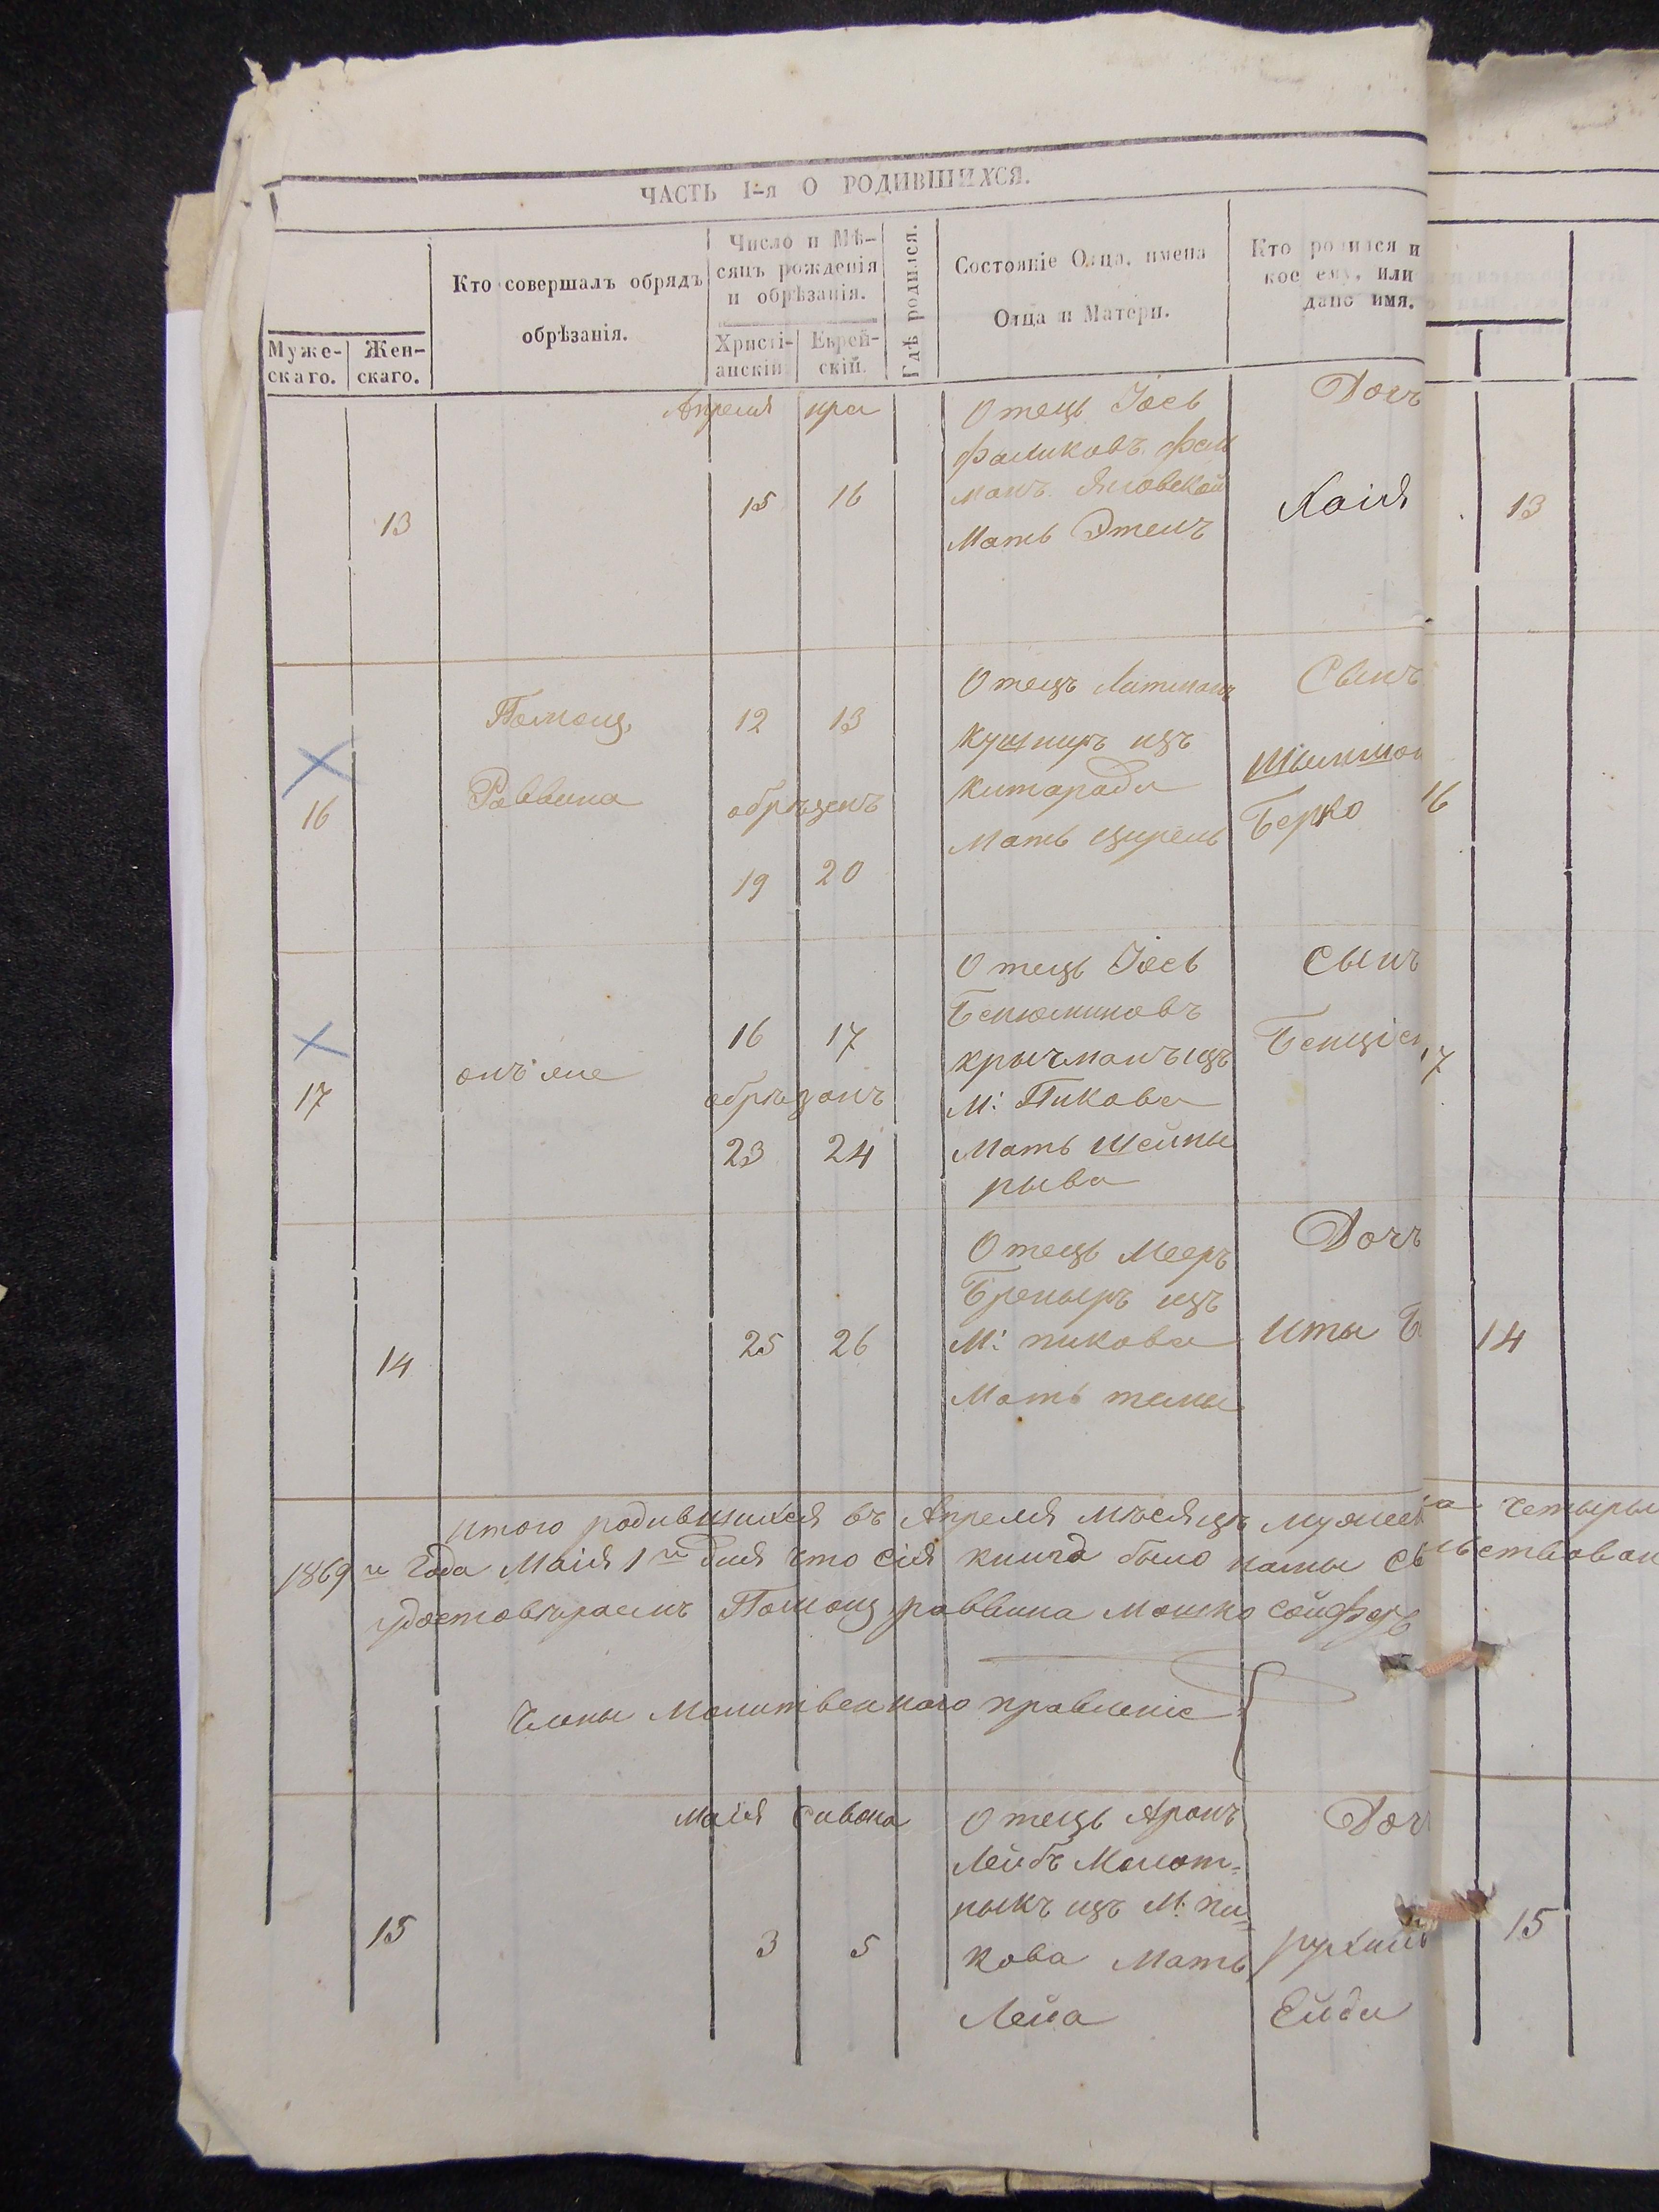 ЧАСТЬ I-я О РОДИВШИХСЯ.
Муже-
скаго.
Жен-
скаго.
Кто совершалъ обрядъ
обрѣзанія.
Число и Мѣ-
сяцъ рожденія
и обрѣзанія.
Христі-
анскій
Еврей-
скій.
Гдѣ родился.
Состояніе Отца, имена
Отца и Матери.
Кто родился и
кое ему, или
дано имя.
13
Апреля
15
16
Отецъ Іосъ
Фаликовъ
Мать Этель
Дочъ
Хаія
13
16
Помощ,
Раввина
12
13
обрѣзенъ
19
20
Отецъ
Кушниръ изъ
Китарада
Мать Цирель
Сынъ
Берко
16
17
онъ же
16
17
обрѣзанъ
23
24
Отецъ Іосъ
Бенюминовъ
Кричманъ изъ
М: Пикова
Мать Шейны
рыва
Сынъ
17
14
25
26
Отецъ Мееръ
изъ
М: пикова
Мать
Дочъ
Ита
14
Итого родившихся въ Апреля мѣсяцѣ четыры
1869 го Года Маія 1 го дня что сія книга было нами
удостовѣраемъ Помощ раввина Мошко Сойферъ
Члены Молитвеннаго правленіе
15
Маія Сивона
3
5
Отецъ Аронъ
Лейбъ Молот-
ныкъ изъ М: пи-
кова Мать
Лейа
Дочъ
Ейди
15